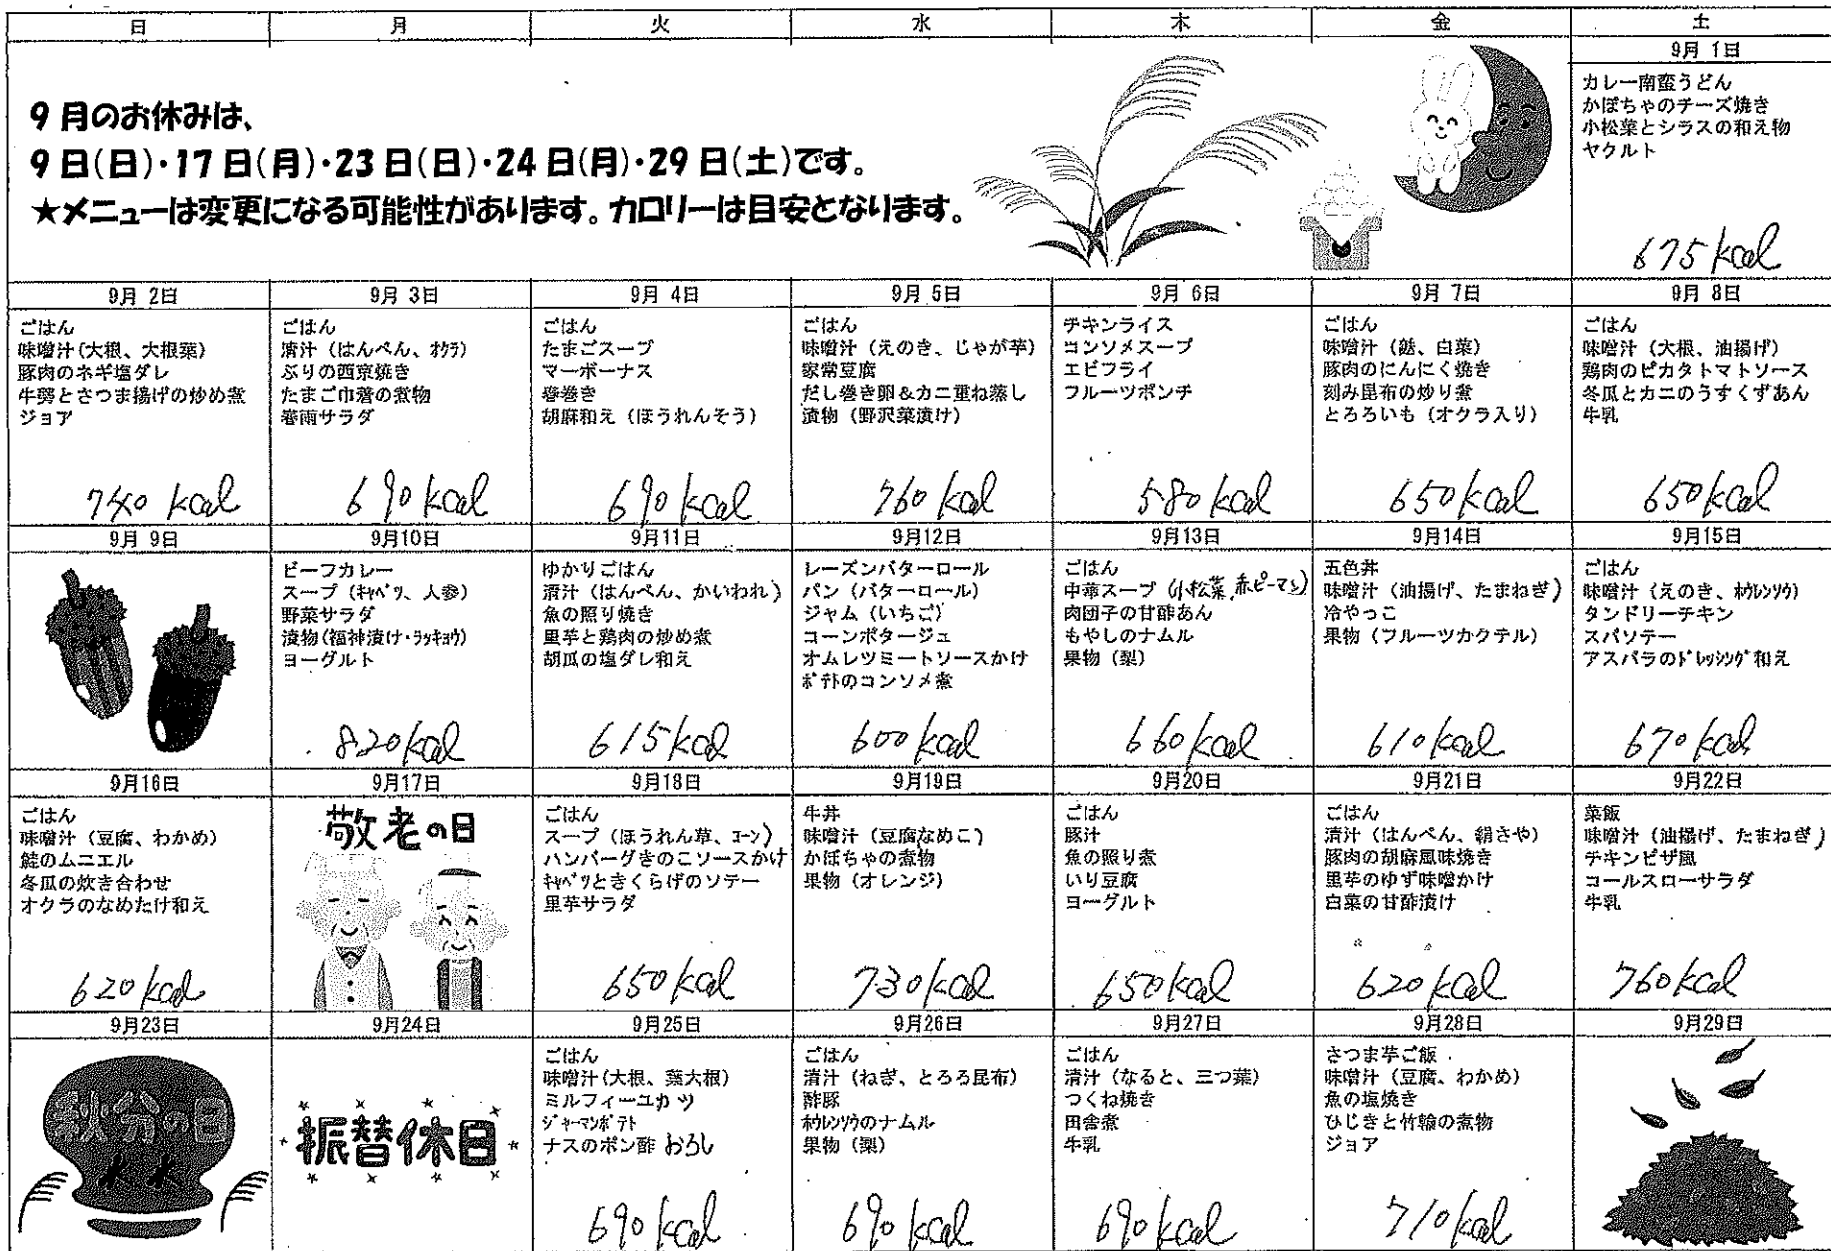 日 月 火 水 木 金 土
9月のお休みは、
9日(日)・17日(月)・23日(日)・24日(月)・29日(土)です。
★メニューは変更になる可能性があります。カロリーは目安となります。
9月 1日
カレー南蛮うどん
かぼちゃのチーズ焼き
小松菜とシラスの和え物
ヤクルト
675kcal
9月 2日
ごはん
味噌汁(大根、大根葉)
豚肉のネギ塩ダレ
牛蒡とさつま揚げの炒め煮
ジョア
740 kcal
9月 3日
ごはん
清汁(はんぺん、オクラ)
ぶりの西京焼き
たまご巾着の煮物
春雨サラダ
690kcal
9月 4日
ごはん
たまごスープ
マーボーナス
春巻き
胡麻和え(ほうれんそう)
690kcal
9月 5日
ごはん
味噌汁(えのき、じゃが芋)
家常豆腐
だし巻き卵&カニ重ね蒸し
漬物(野沢菜漬け)
760kcal
9月 6日
チキンライス
コンソメスープ
エビフライ
フルーツポンチ
580kcal
9月 7日
ごはん
味噌汁(麩、白菜)
豚肉のにんにく焼き
刻み昆布の炒り煮
とろろいも(オクラ入り)
650kcal
9月 8日
ごはん
味噌汁(大根、油揚げ)
鶏肉のピカタトマトソース
冬瓜とカニのうすくずあん
牛乳
650kcal
9月 9日
9月10日
ビーフカレー
スープ(キャベツ、人参)
野菜サラダ
漬物(福神漬け・ラッキョウ)
ヨーグルト
820kcal
9月11日
ゆかりごはん
清汁(はんぺん、かいわれ)
魚の照り焼き
里芋と鶏肉の炒め煮
胡瓜の塩ダレ和え
615kcal
9月12日
レーズンバターロール
パン(バターロール)
ジャム(いちご)
コーンポタージュ
オムレツミートソースかけ
ポテトのコンソメ煮
600kcal
9月13日
ごはん
中華スープ(小松菜,赤ピーマン)
肉団子の甘酢あん
もやしのナムル
果物(梨)
660kcal
9月14日
五色丼
味噌汁(油揚げ、たまねぎ)
冷やっこ
果物(フルーツカクテル)
610kcal
9月15日
ごはん
味噌汁(えのき、ホウレンソウ)
タンドリーチキン
スパソテー
アスパラのドレッシング和え
670kcal
9月16日
ごはん
味噌汁(豆腐、わかめ)
鮭のムニエル
冬瓜の炊き合わせ
オクラのなめたけ和え
620kcal
9月17日
敬老の日
9月18日
ごはん
スープ(ほうれん草、コーン)
ハンバーグきのこソースかけ
キャベツときくらげのソテー
里芋サラダ
650kcal
9月19日
牛丼
味噌汁(豆腐なめこ)
かぼちゃの煮物
果物(オレンジ)
730kcal
9月20日
ごはん
豚汁
魚の照り煮
いり豆腐
ヨーグルト
650kcal
9月21日
ごはん
清汁(はんぺん、絹さや)
豚肉の胡麻風味焼き
里芋のゆず味噌かけ
白菜の甘酢漬け
620kcal
9月22日
菜飯
味噌汁(油揚げ、たまねぎ)
チキンピザ風
コールスローサラダ
牛乳
760kcal
9月23日
秋分の日
9月24日
振替休日
9月25日
ごはん
味噌汁(大根、葉大根)
ミルフィーユカツ
ジャーマンポテト
ナスのポン酢 おろし
690kcal
9月26日
ごはん
清汁(ねぎ、とろろ昆布)
酢豚
ホウレンソウのナムル
果物(梨)
690kcal
9月27日
ごはん
清汁(なると、三つ葉)
つくね焼き
田舎煮
牛乳
690kcal
9月28日
さつま芋ご飯
味噌汁(豆腐、わかめ)
魚の塩焼き
ひじきと竹輪の煮物
ジョア
710kcal
9月29日